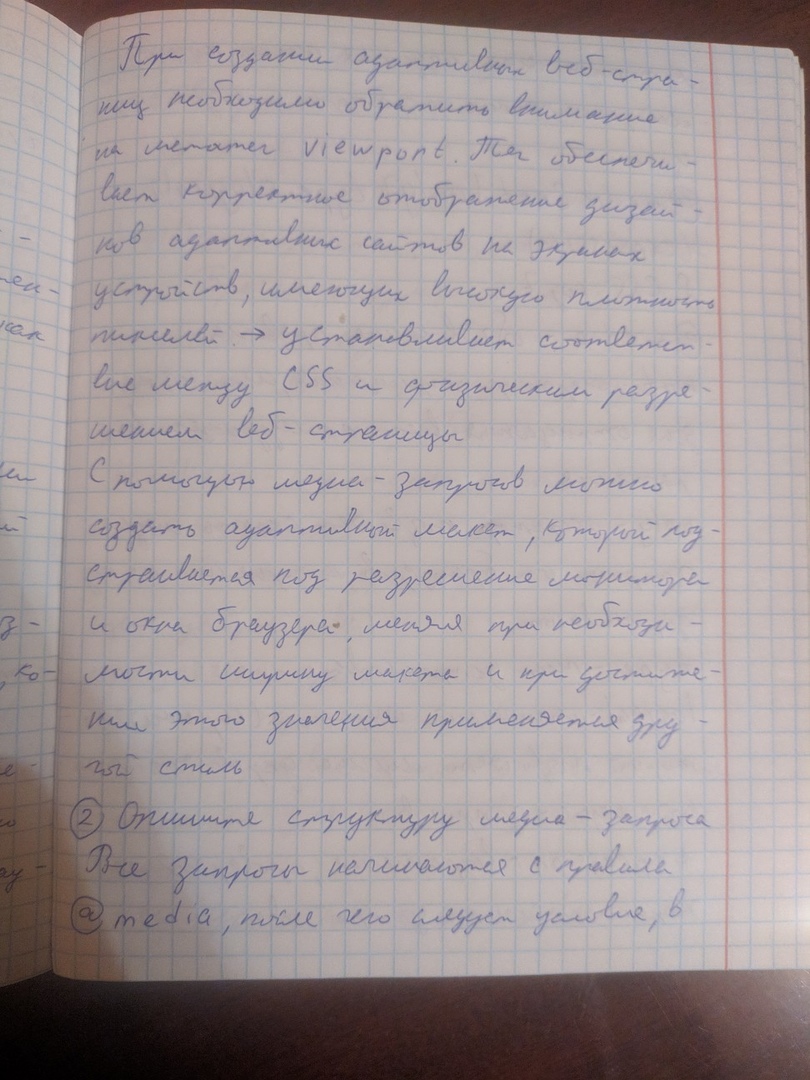 При создании адаптивных веб-стра-
ниц необходимо обратить внимание
на метатег viewport. Тег обеспечи-
вает корректное отображение дизай-
нов адаптивных сайтов на экранах
устройств, имеющих высокую плотность
пикселей → устанавливает соответст-
вие между CSS и физическим разре-
шением веб-страницы
С помощью медиа-запросов можно
создать адаптивный макет, который под-
страивается под разрешение монитора
и окна браузера, меняя при необходи-
мости ширину макета и при достиже-
нии этого значения применяется дру-
гой стиль
② Опишите структуру медиа-запроса
Все запросы начинаются с правила
@media, после чего следует условие, в